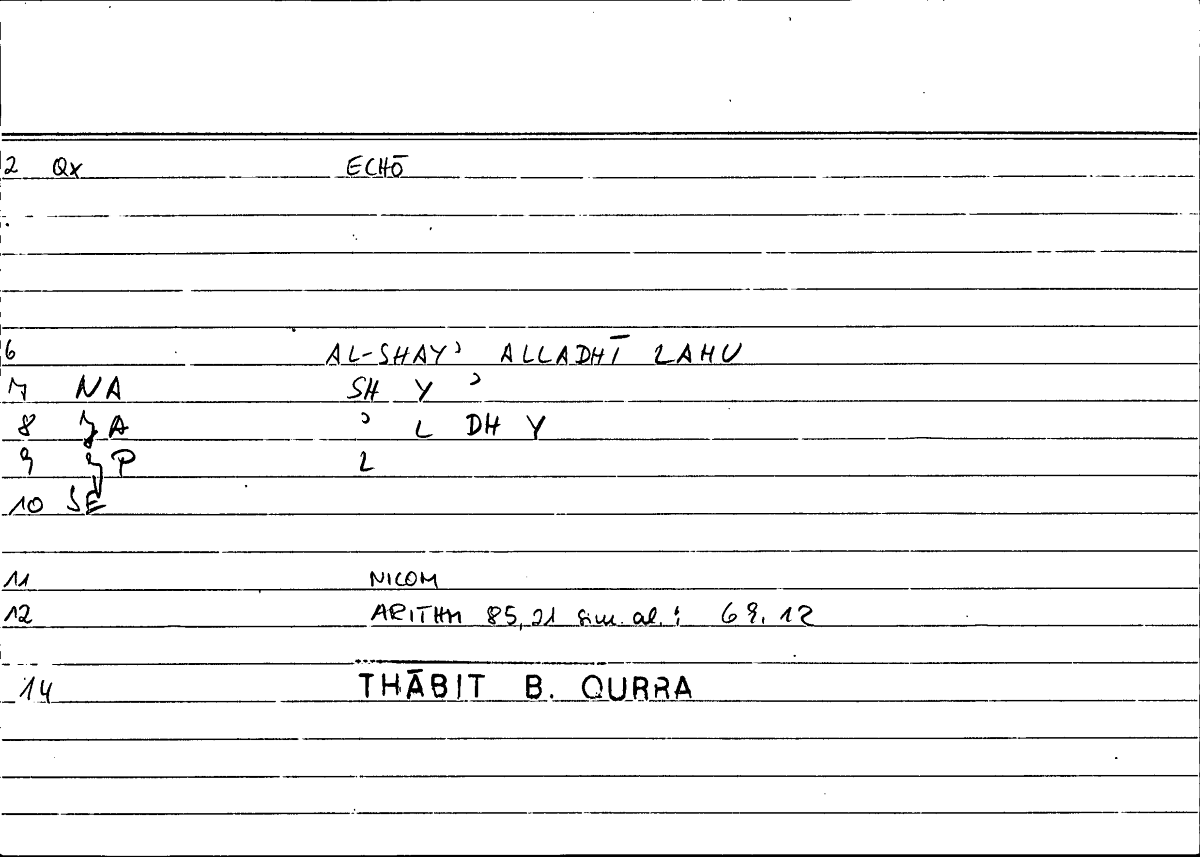 2 Qx ECHŌ
6 AL-SHAYʾ ALLADHĪ LAHU
7 NA SH Y ʾ
8 JA ʾ L DH Y
9 JP L
10 SE
11 NICOM
12 ARITHM 85,21 sim. al.: 69.12
14 THĀBIT B. QURRA